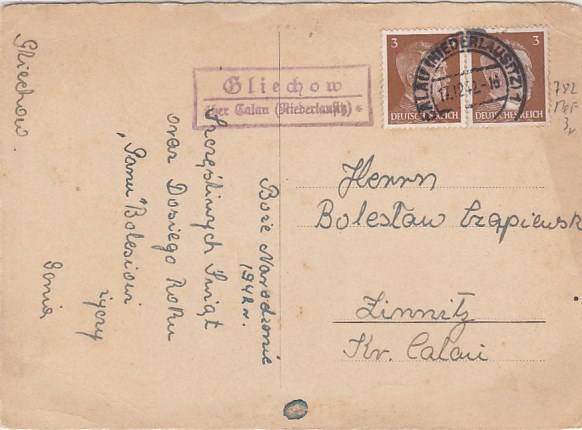 Gliechow.
Boże Narodzenie
1942 r.
Szczęśliwych Świąt
oraz Dosiego Roku
"Panu" Bolesiowi
życzy
Genia
Gliechow
über Calau (Niederlausitz)
3
3
DEUTSCHES REICH
DEUTSCHES REICH
CALAU (NIEDERLAUSITZ)
17.12.42.-18
Herrn
Bolesław Czapiewsk
Zinnitz
Kr. Calau